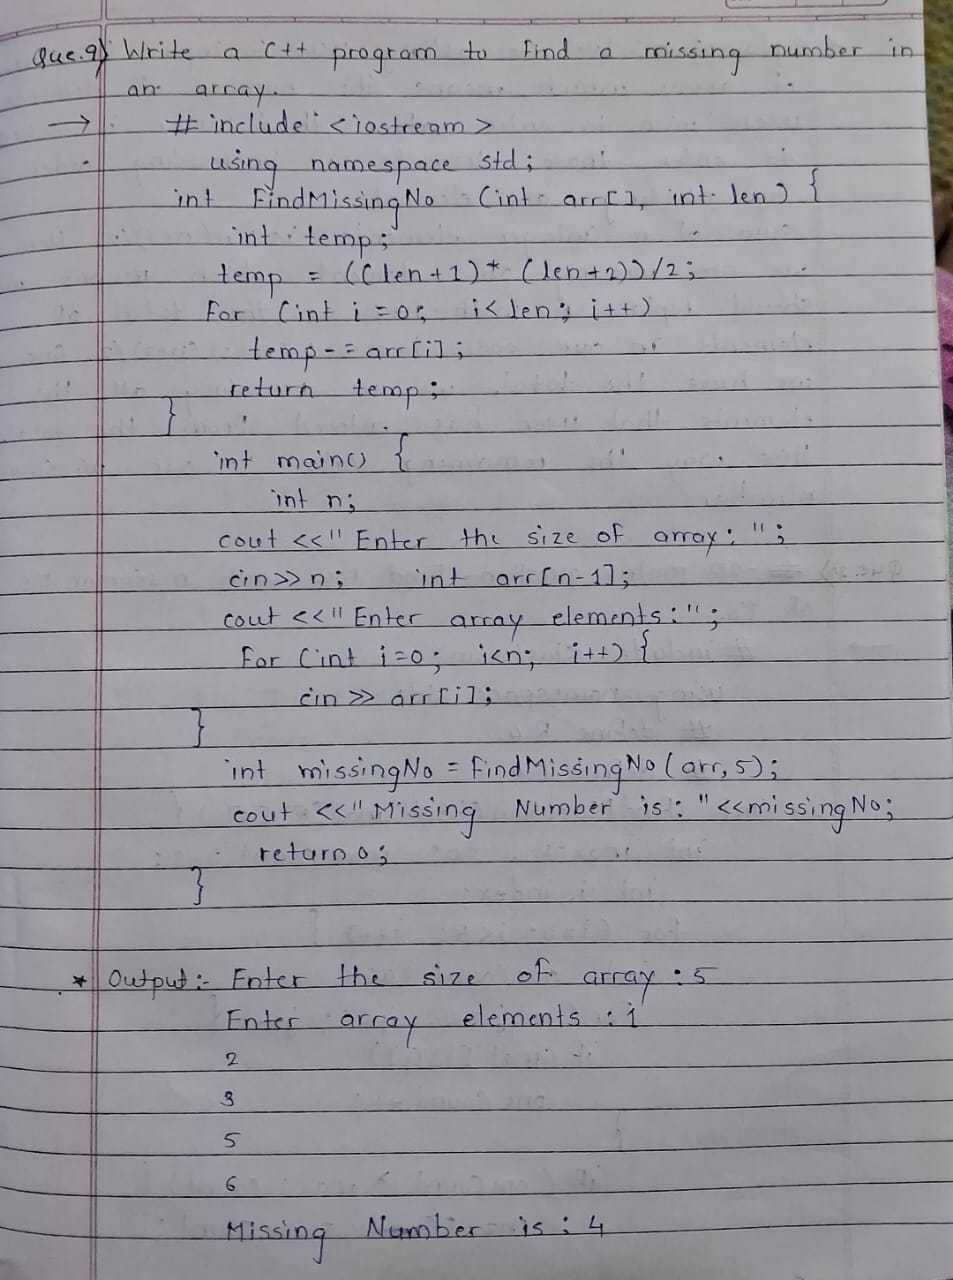 Que.9) Write a C++ program to find a missing number in
an array.
→ # include <iostream>
using namespace std;
int FindMissingNo (int arr[], int len) {
int temp;
temp = ((len+1)* (len+2))/2;
For (int i=0; i<len; i++)
temp-= arr[i];
return temp;
}
int main() {
int n;
cout <<" Enter the size of array: ";
cin>>n; int arr[n-1];
cout <<" Enter array elements:";
For (int i=0; i<n; i++) {
cin >> arr[i];
}
int missingNo = FindMissingNo (arr, 5);
cout <<" Missing Number is: "<<missingNo;
return 0;
}
* Output:- Enter the size of array : 5
Enter array elements : 1
2
3
5
6
Missing Number is : 4